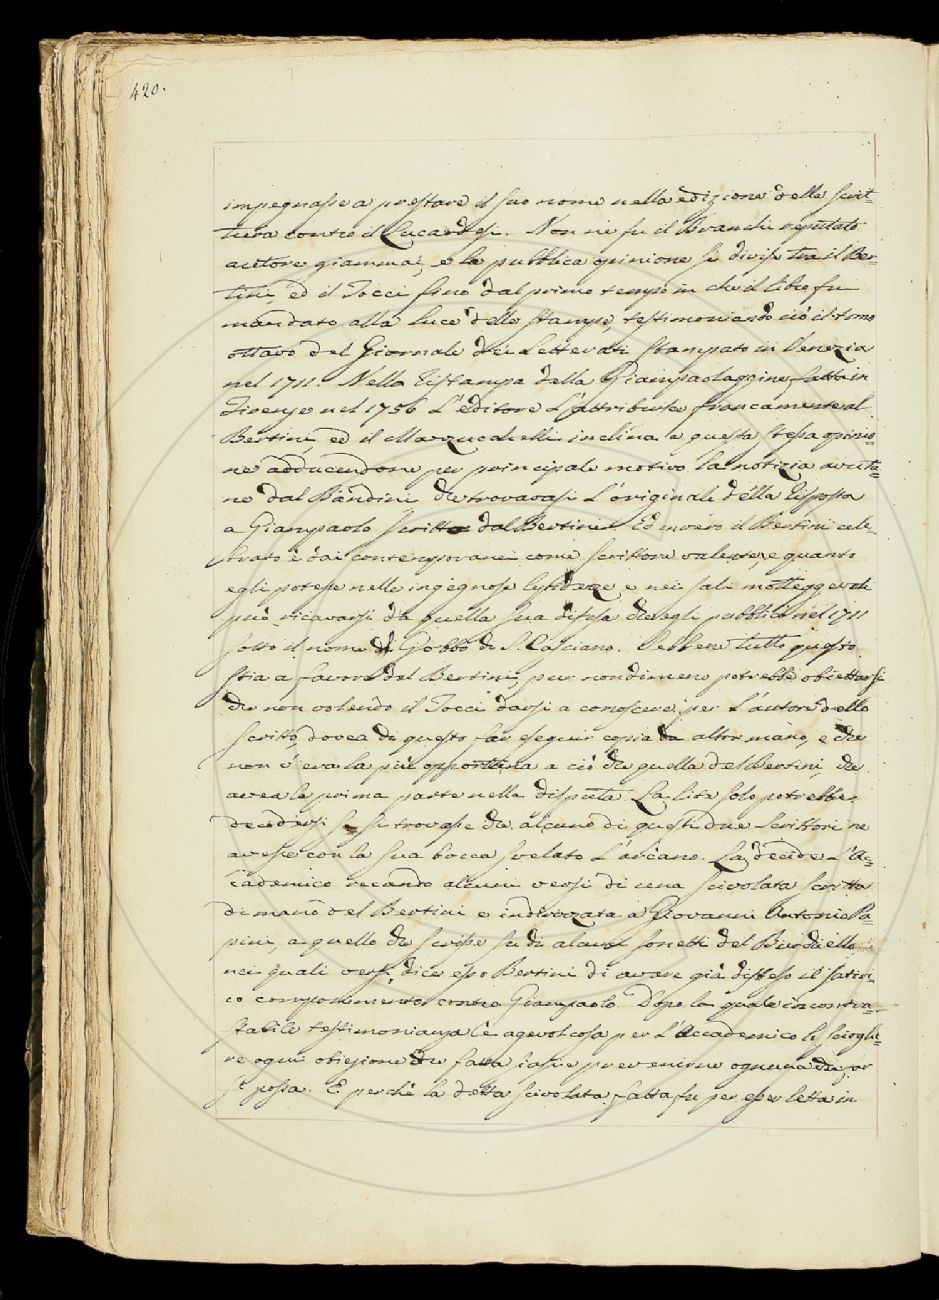 420.
impegnasse a prestare il suo nome nella edizione della scrit=
tura contro il Lucardesi. Non ne fu il Branchi reputato
autore giammai, e la pubblica opinione si divise tra il Ber=
tini, ed il Tocci fino dal primo tempo in che il libro fu
mandato alla luce delle stampe, testimoniando ciò il tomo
ottavo del Giornale dei Letterati stampato in Venezia
nel 1711. Nella ristampa della Giampaolaggine fatta in
Firenze nel 1756 l'editore l'attribuisce francamente al
Bertini, ed il Mazzucchelli inclina a questa stessa opinio=
ne adducendone per principale motivo la notizia avuta=
ne dal Bandini che trovavasi l'originale della risposta
a Giampaolo scritto dal Bertini. Ed invero il Bertini cele=
brato è dai contemporanei come scrittore valente, e quanto
egli potesse nelle ingegnose e nei sali motteggevoli
può ricavarsi da quella sua difesa che egli pubblicò nel 1711
sotto il nome di Gobbo di S. Casciano. Sebbene tutto questo
stia a favore del Bertini, pur nondimeno potrebbe obiettarsi
che non volendo il Tocci darsi a conoscere per l'autore dello
scritto, dovea di questo far eseguir copia da altra mano, e che
non v'era la più opportuna a ciò che quella del Bertini, che
avea la prima parte nella disputa. La lite solo potrebbe
decidersi se si trovasse che alcuno di questi due scrittori ne
avesse con la sua bocca svelato l'arcano. La decide l'Ac=
cademico recando alcuni versi di una cicalata scritta
di mano del Bertini e indirizzata a Giovanni Antonio Pa=
pini, a quello che scrisse su di alcuni sonetti del Burchiello
nei quali versi dice esso Bertini di avere già disteso il satiri=
co componimento contro Giampaolo. Dopo la quale incontra=
stabile testimonianza è agevol cosa per l'Accademico lo scioglie=
re ogni obiezione che fatta siasi e prevenirne ognuna che far
si possa. E perchè la detta cicalata fatta fu per esser letta in